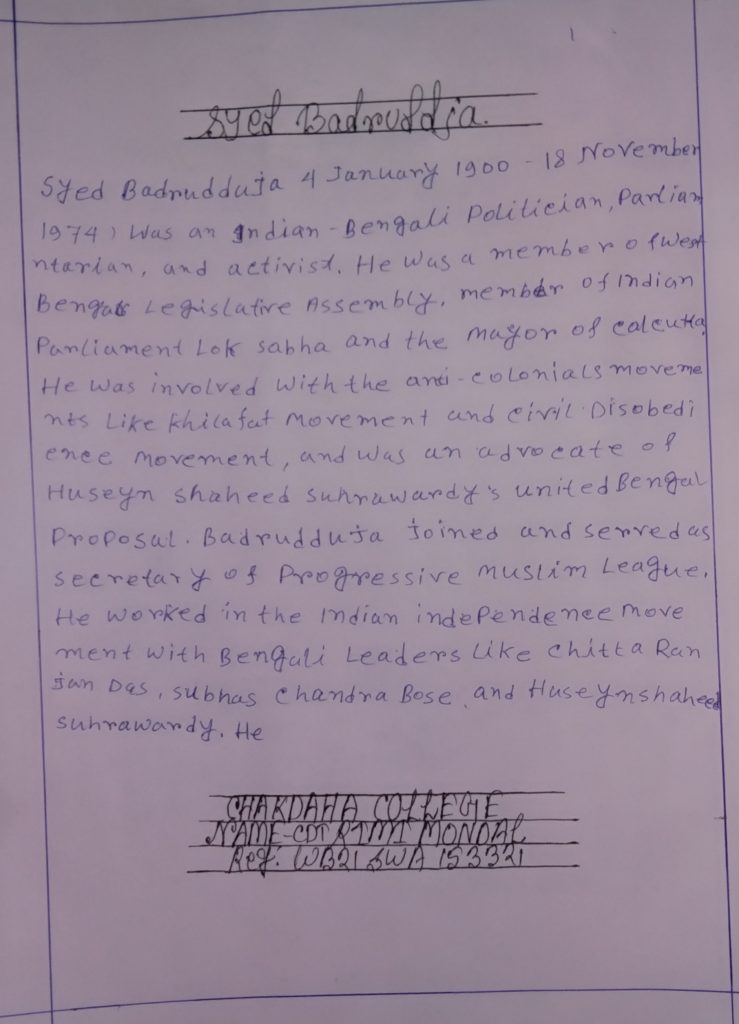 1
Syed Badrudduja.
Syed Badrudduja 4 January 1900 - 18 November
1974) Was an Indian - Bengali Politician, Parliam
ntarian, and activist. He was a member of West
Bengal Legislative Assembly, member of Indian
Parliament Lok sabha and the mayor of calcutta
He was involved with the anti-colonials moveme
nts Like Khilafat Movement and civil Disobedi
ence movement, and was an advocate of
Huseyn Shaheed Suhrawardy's united Bengal
Proposal. Badrudduja Joined and served as
secretary of Progressive Muslim League.
He worked in the Indian independence move
ment with Bengali Leaders like chitta Ran
jan Das, subhas chandra Bose, and Huseyn shaheed
suhrawardy. He
CHAKDAHA COLLEGE
NAME-CDT RIMI MONDAL
Reg: WB21 SWA 153321